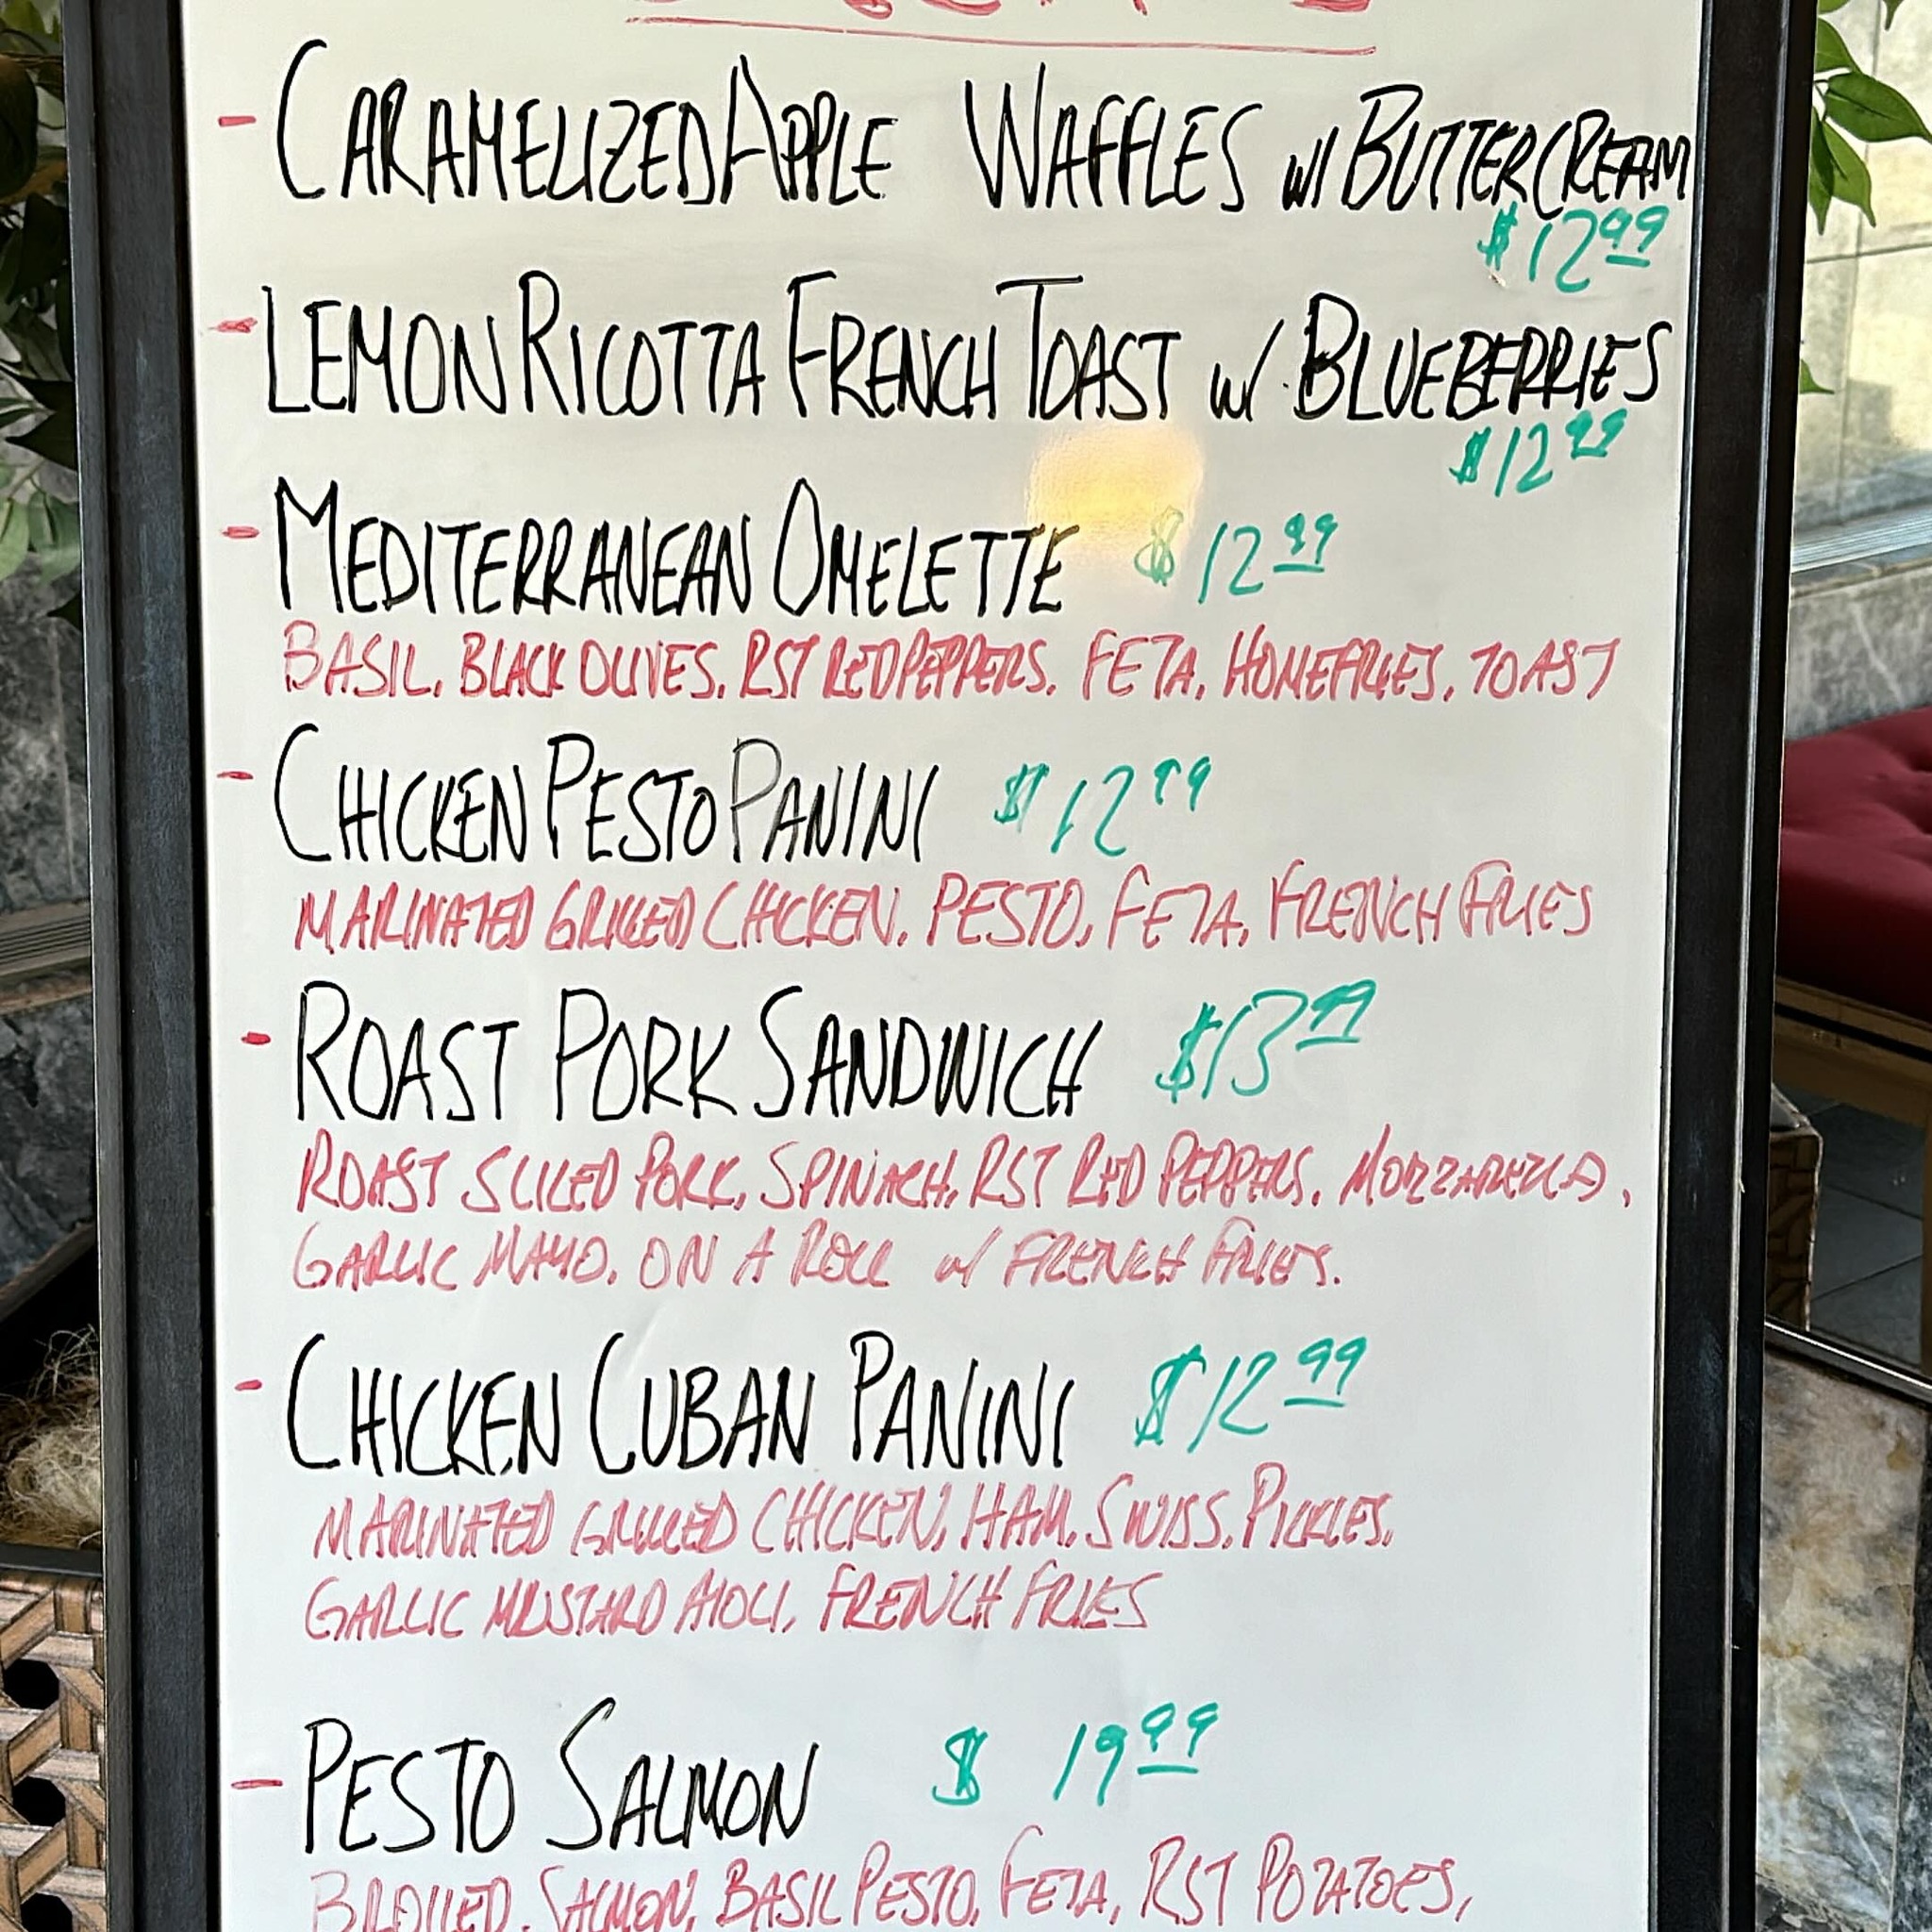 - CARAMELIZED APPLE WAFFLES w/ BUTTERCREAM
$12.99
- LEMON RICOTTA FRENCH TOAST w/ BLUEBERRIES
$12.99
- MEDITERRANEAN OMELETTE $12.99
BASIL, BLACK OLIVES, RST RED PEPPERS, FETA, HOMEFRIES, TOAST
- CHICKEN PESTO PANINI $12.99
MARINATED GRILLED CHICKEN, PESTO, FETA, FRENCH FRIES
- ROAST PORK SANDWICH $13.99
ROAST SLICED PORK, SPINACH, RST RED PEPPERS, MOZZARELLA,
GARLIC MAYO, ON A ROLL w/ FRENCH FRIES.
- CHICKEN CUBAN PANINI $12.99
MARINATED GRILLED CHICKEN, HAM, SWISS, PICKLES,
GARLIC MUSTARD AIOLI, FRENCH FRIES
- PESTO SALMON $19.99
BROILED SALMON, BASIL PESTO, FETA, RST POTATOES,